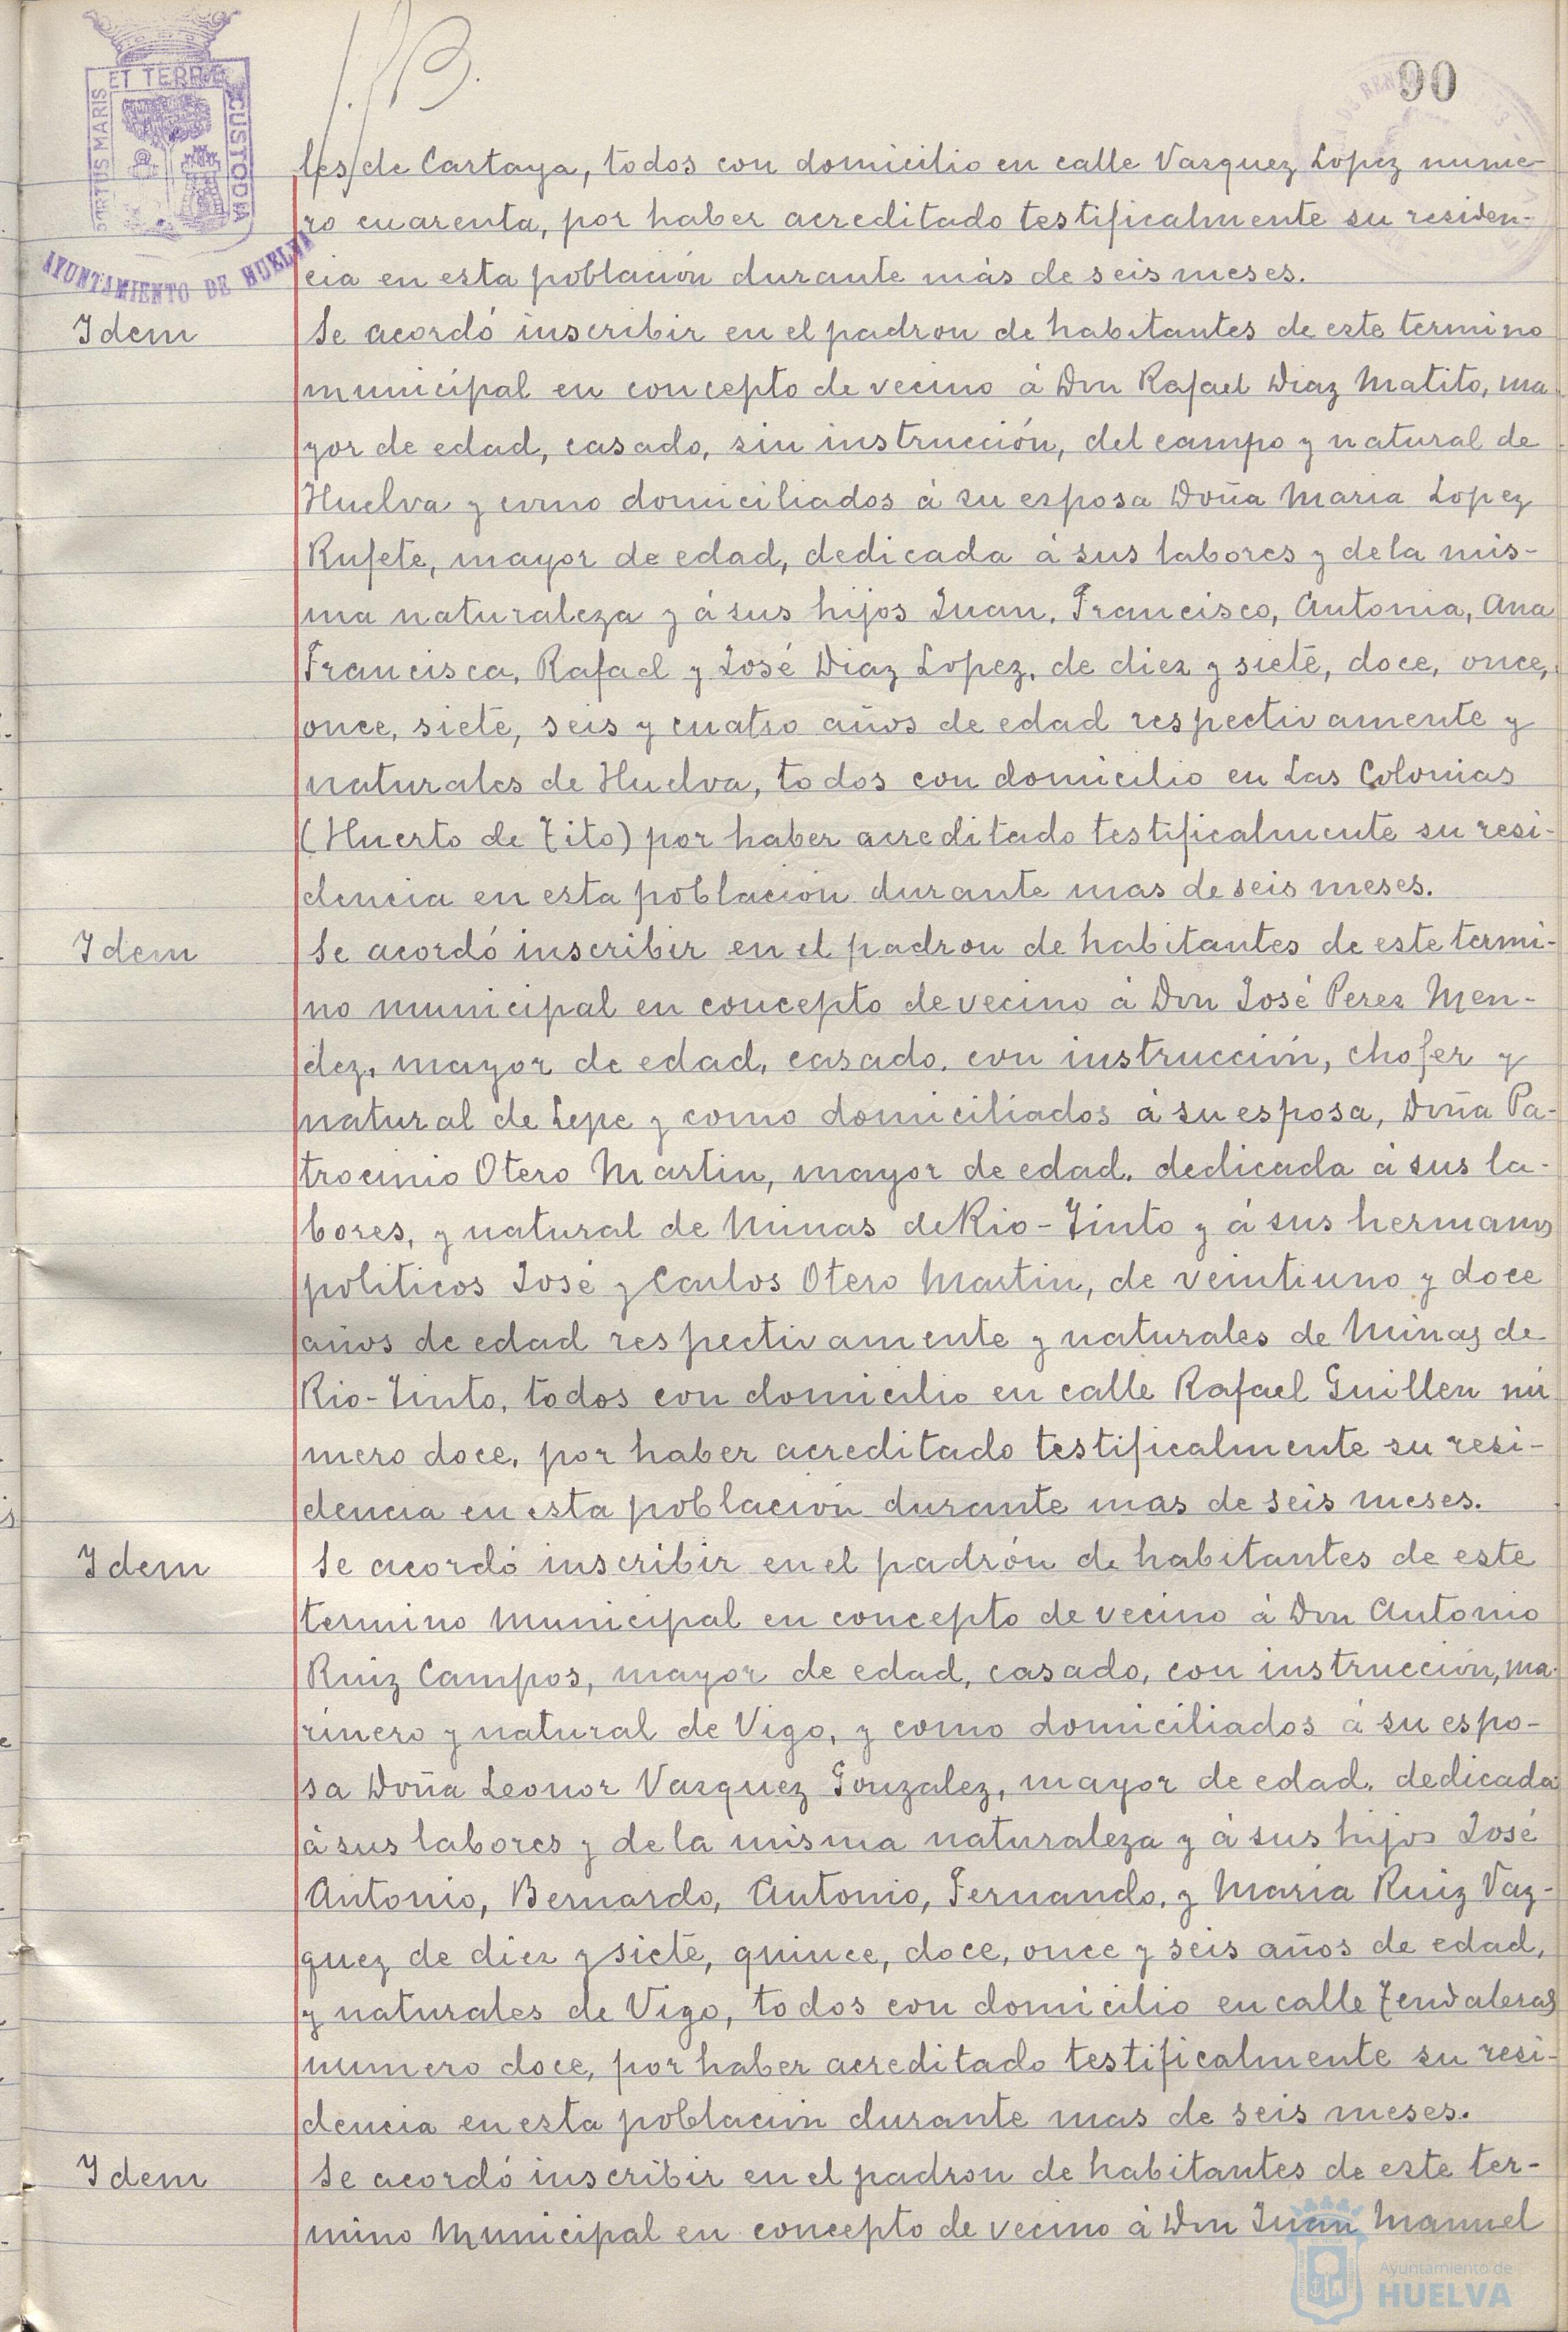 90
PORTUS MARIS ET TERRE CUSTODIA
AYUNTAMIENTO DE HUELVA
les de Cartaya, todos con domicilio en calle Vazquez Lopez nume-
ro cuarenta, por haber acreditado testificalmente su residen-
cia en esta población durante más de seis meses.
Idem
Se acordó inscribir en el padron de habitantes de este termino
municipal en concepto de vecino á Don Rafael Diaz Matito, ma-
yor de edad, casado, sin instrucción, del campo y natural de
Huelva y como domiciliados á su esposa Doña Maria Lopez
Rufete, mayor de edad, dedicada á sus labores y de la mis-
ma naturaleza y á sus hijos Juan, Francisco, Antonia, Ana
Francisca, Rafael y José Diaz Lopez, de diez y siete, doce, once,
once, siete, seis y cuatro años de edad respectivamente y
naturales de Huelva, todos con domicilio en Las Colonias
(Huerto de Tito) por haber acreditado testificalmente su resi-
dencia en esta población durante mas de seis meses.
Idem
Se acordó inscribir en el padron de habitantes de este termi-
no municipal en concepto de vecino á Don José Perez Men-
dez, mayor de edad, casado, con instrucción, chofer y
natural de Lepe y como domiciliados á su esposa, Doña Pa-
trocinio Otero Martin, mayor de edad, dedicada á sus la-
bores, y natural de Minas de Rio-Tinto y á sus hermanos
politicos José y Carlos Otero Martin, de veintiuno y doce
años de edad respectivamente y naturales de Minas de
Rio-Tinto, todos con domicilio en calle Rafael Guillen nú
mero doce, por haber acreditado testificalmente su resi-
dencia en esta población durante mas de seis meses.
Idem
Se acordó inscribir en el padrón de habitantes de este
termino municipal en concepto de vecino á Don Antonio
Ruiz Campos, mayor de edad, casado, con instrucción, ma-
rinero y natural de Vigo, y como domiciliados á su espo-
sa Doña Leonor Vazquez Gonzalez, mayor de edad, dedicada
á sus labores y de la misma naturaleza y á sus hijos José
Antonio, Bernardo, Antonio, Fernando, y Maria Ruiz Vaz-
quez de diez y siete, quince, doce, once y seis años de edad,
y naturales de Vigo, todos con domicilio en calle Tendaleras
numero doce, por haber acreditado testificalmente su resi-
dencia en esta población durante mas de seis meses.
Idem
Se acordó inscribir en el padron de habitantes de este ter-
mino municipal en concepto de vecino á Don Juan Manuel
Ayuntamiento de
HUELVA